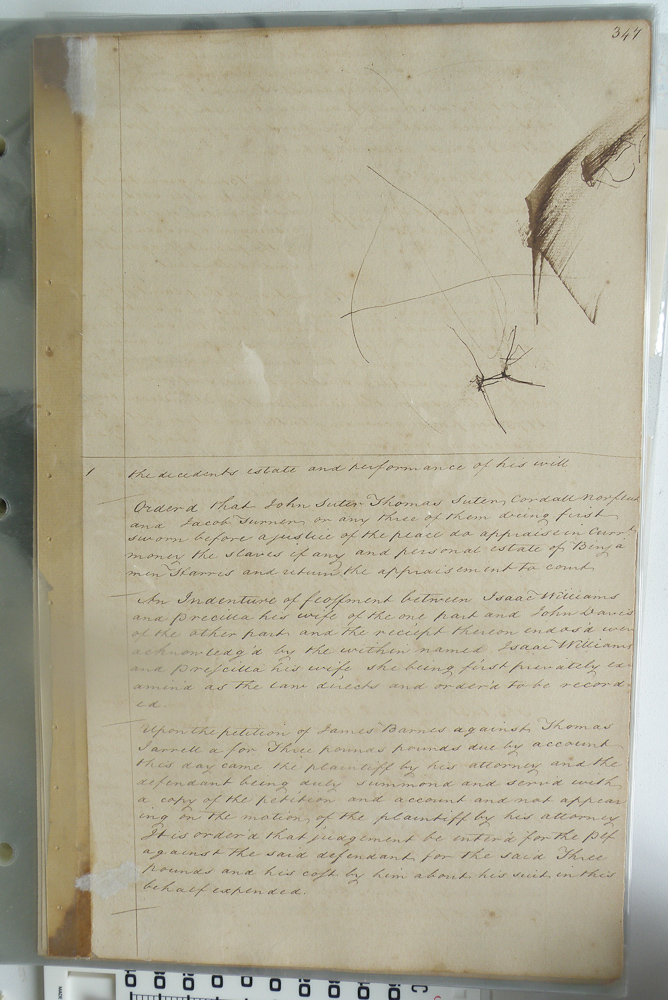 347
1 the decedents estate and performance of his will
Order'd that John Suter Thomas Suter, Cordall Norfleet
and Jacob Turner or any three of them being first
sworn before a justice of the peace do appraise in Curr.t
money the slaves if any and personal estate of Benja
min Harris and return the appraisement to court
An Indenture of feoffment between Isaac Williams
and Precilla his wife of the one part and John Davis
of the other part and the reciept thereon endos'd were
acknowledg'd by the within named Isaac Williams
and Prescilla his wife she being first privately ex
amind as the law directs and order'd to be record
ed.
Upon the petition of James Barnes against Thomas
Jarrell a for Three pounds pounds due by account
this day came the plaintiff by his attorney and the
defendant being duly summond and serv'd with
a copy of the petition and account and not appear
ing on the motion of the plaintiff by his attorney
It is order'd that judgement be enter'd for the plf
against the said defendant for the said Three
pounds and his cost by him about his suit in this
behalf expended.